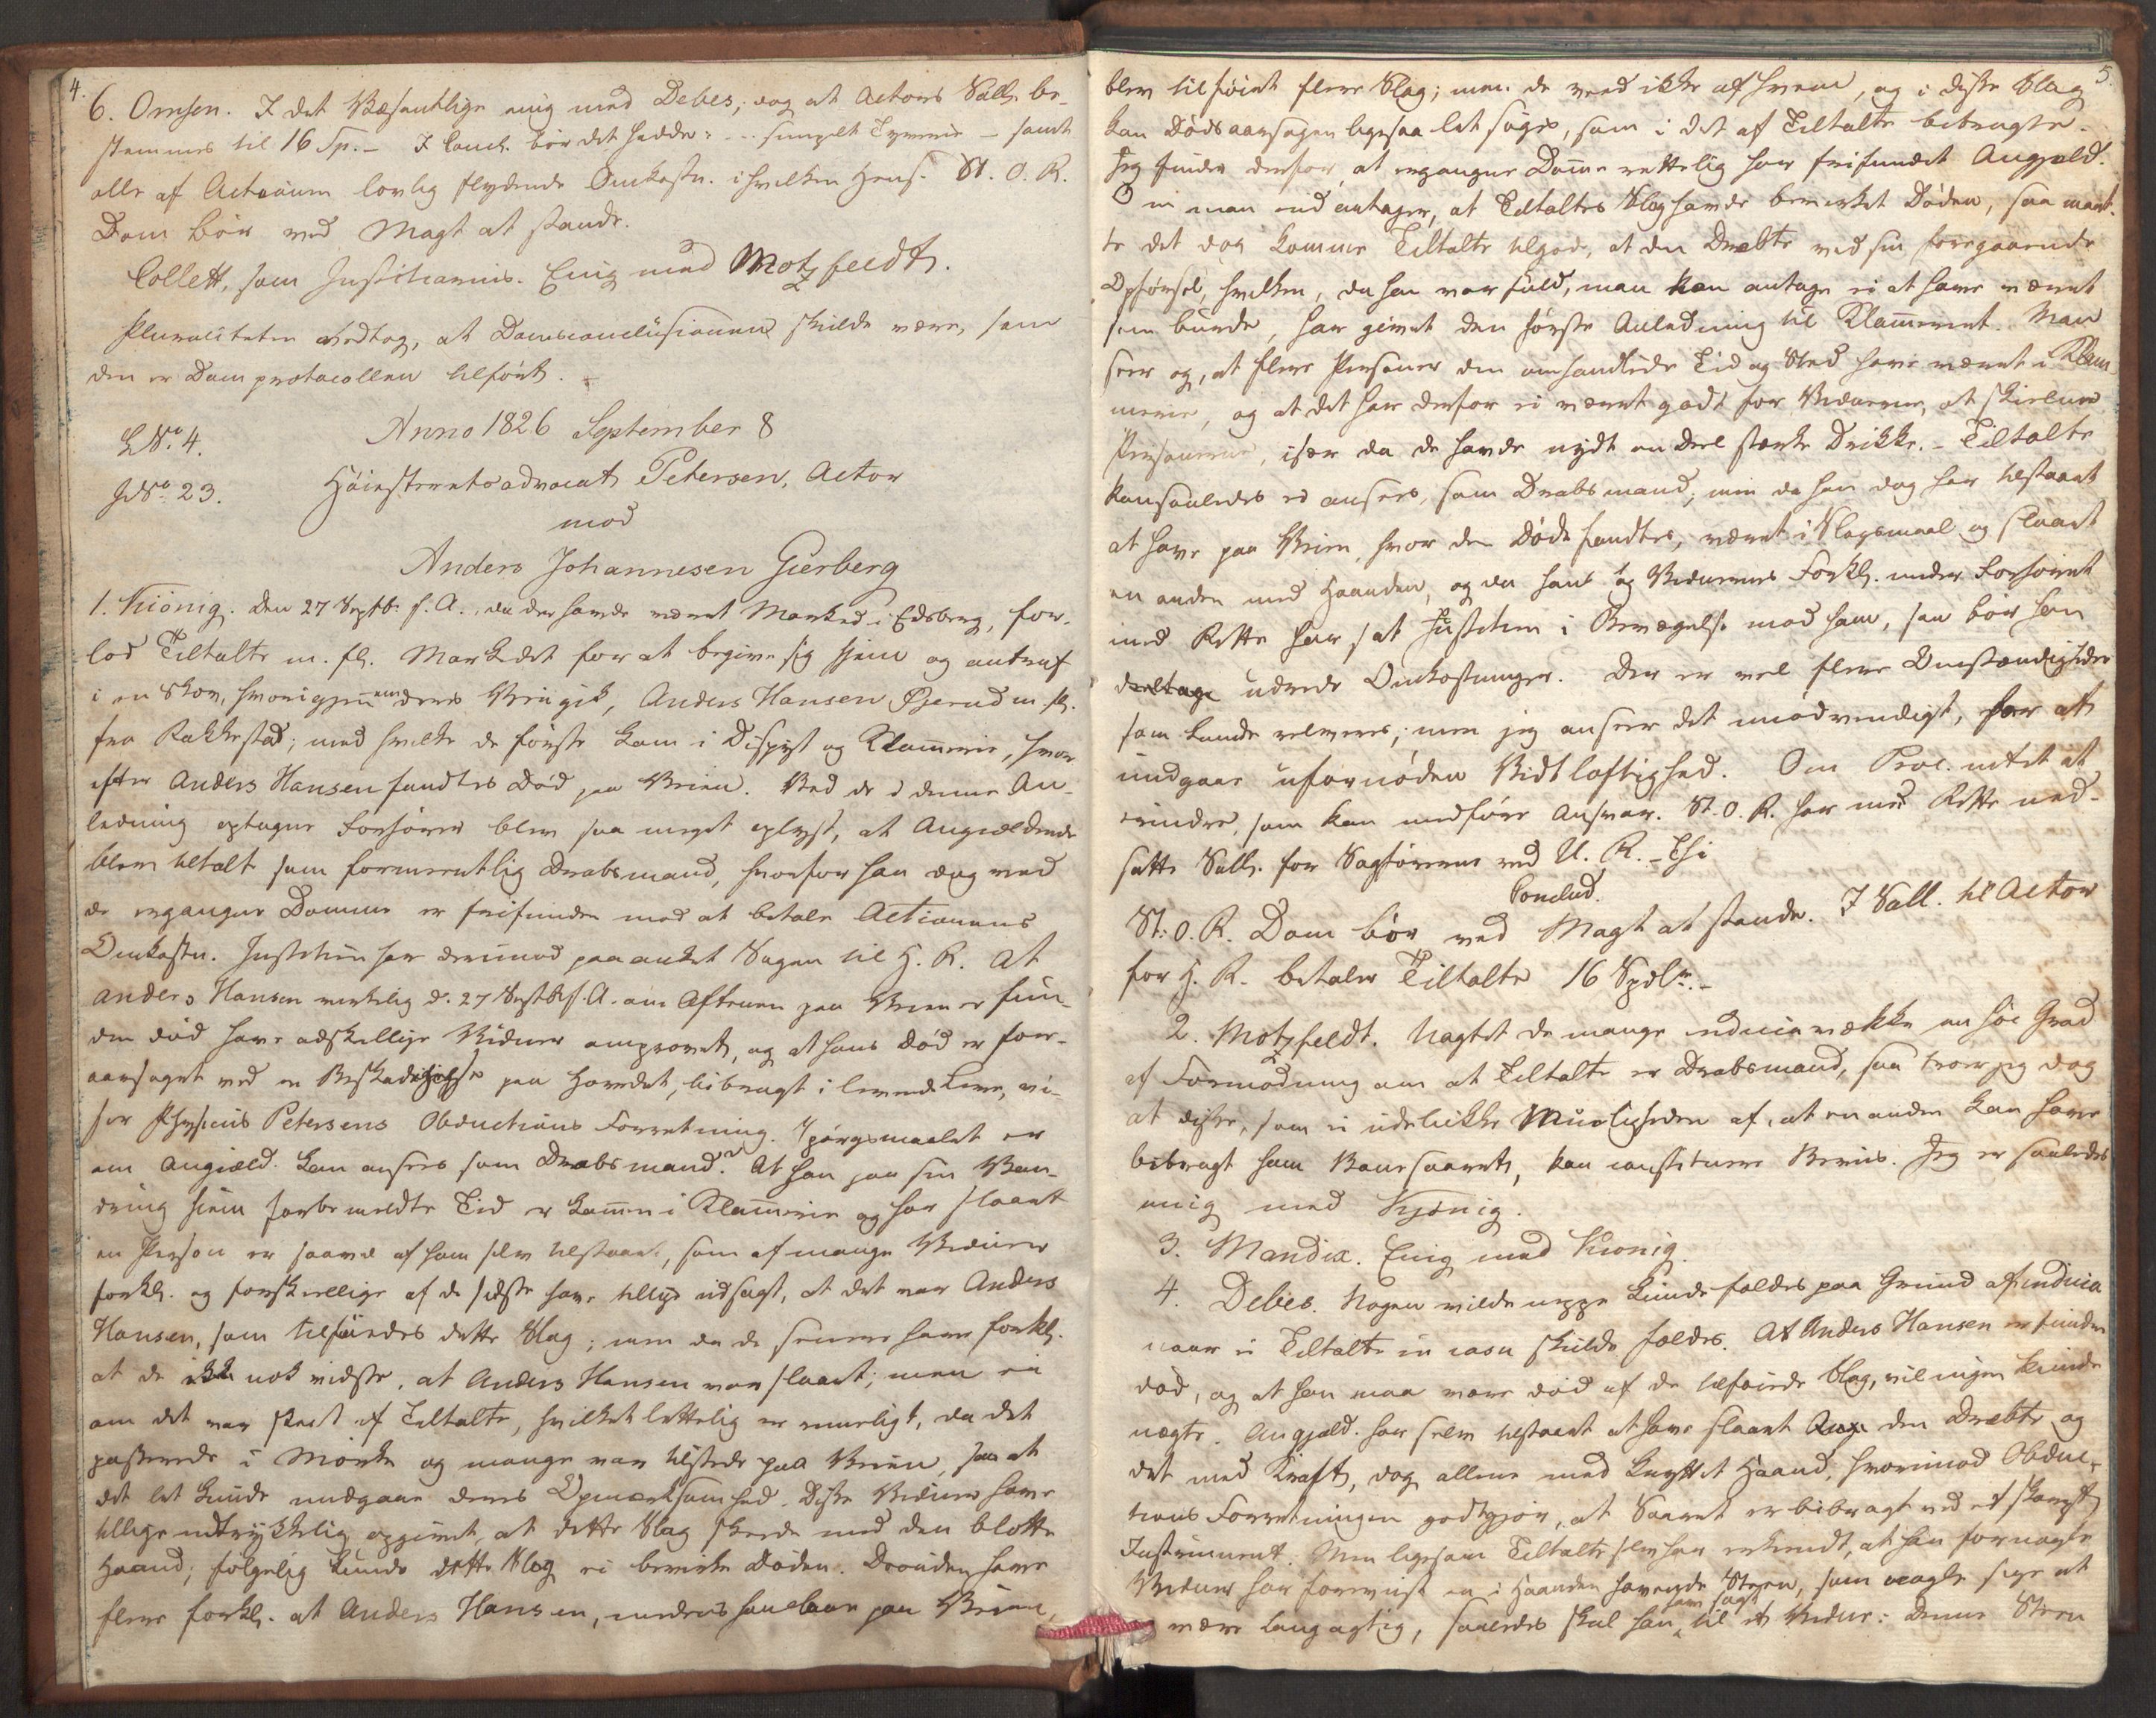 4.
6. Omsen. I det Væsentlige enig med Debes, dog at Actors Sall. be-
stemmes til 16 Sp. – I Concl. bör det hedde: ... simpelt Tyverie – samt
alle af Actionen lovlig flydende Omkostn. i hvilken Hens. St. O. R.
Dom bör ved Magt at stande.
Collett, som Justitiarius. Enig med Motzfeldt.
Pluraliteten vedtog, at Domsconclusionen skulde være, som
den er Domprotocollen tilfört.
Anno 1826 September 8
L No. 4.
J No. 23.
Höiesteretsadvocat Petersen, Actor
mod
Anders Johannesen Gierberg
1. Kiönig. Den 27 Septbr. f. A., da der havde været Marked i Edsberg, for-
lod Tiltalte m. fl. Markedet for at begive sig hjem og antraf
i en Skov, hvorigjennem deres Vei gik, Anders Hansen Öjerud m. fl.
fra Rakkestad; med hvilke de förste kom i Dispyt og Klammerie, hvor-
efter Anders Hansen fandtes död paa Veien. Ved de i denne An-
ledning optagne Forhörer blev saa meget oplyst, at Angieldende
blev tiltalt som formeentlig Drabsmand, hvorfor han dog ved
de ergangne Domme er frifunden mod at betale Actionens
Omkostn. Justitien har derimod paaanket Sagen til H. R. At
Anders Hansen virkelig d. 27 Septbr. f. A. om Aftenen paa Veien er fun-
den död have adskillige Vidner anprovet, og at hans Död er foor-
aarsaget ved en Beskadigelse paa Hovedet, bibragt i levende Live, vi-
ser Physicus Petersens Obductions Forretning. Spörgsmaalet er
om Angield. kan ansees som Drabsmand? At han paa sin Van-
dring hiem forbemeldte Tid er kommen i Klammerie og har slaaet
en Person er saavel af ham selv tilstaaet, som af mange Vidner
forkl. og forskiellige af de sidste have tillige udsagt, at det var Anders
Hansen, som tilföiedes dette Slag; men da de senere have forkl.
at de ikke nok vidste, at Anders Hansen var slaaet; men ei
om det var skeet af Tiltalte, hvilket lettelig er mueligt, da det
passerede i Mörke og mange var tilstede paa Veien, saa at
det let kunde undgaae deres Opmærksomhed. Disse Vidner have
tillige udtrykkelig opgivet, at dette Slag skeede med den blotte
Haand; fölgelig kunde dette Slag ei bevirke Döden. Desuden have
flere forkl. at Anders Hansen, medens han laae paa Veien,
5.
blev tilföiet flere Slag; men de veed ikke af hvem, og i disse Slag
kan Dödsaarsagen ligesaa let söges, som i det af Tiltalte bibragte.
Jeg finder derfor, at ergangne Domme rettelig har frifundet Angjeld.
Om man end antager, at Tiltaltes Slag havde bevirket Döden, saa maat-
te det dog komme Tiltalte tilgode, at den Dræbte ved sin foregaaende
Opförsel, hvilken, da han var fuld, man kan antage ei at have været
som burde, har givet den förste Anledning til Klammeriet. Man
seer og, at flere Personer den omhandlede Tid og Sted have været i Klam-
merie, og at det har derfor ei været godt for Vidnerne, at skielne
Personerne, især da de havde nydt en Deel stærke Drikke. – Tiltalte
kan saaledes ei ansees, som Drabsmand; men da han dog har tilstaaet
at have paa Veien, hvor den Döde fandtes, været i Slagsmaal og slaaet
en anden med Haanden, og da hans og Vidnernes Forkl. under Forhöret
med Rette har sat Justitien i Bevægelse mod ham, saa bör han
deeltage udrede Omkostninger. Der er vel flere Omstændigheder
som kunde releveres; men jeg anseer det unödvendigt, for at
undgaae ufornöden Vidtlöftighed. Om Proc. intet at
erindre, som kan medföre Ansvar. St. O. R. har med Rette ned-
satte Sall. for Sagförerne ved U. R. – Thi
Conclud.
St. O. R. Dom bör ved Magt at stande. I Sall. til Actor
for H. R. betaler Tiltalte 16 Spdlr. –
2. Motzfeldt. Uagtet de mange indicia vække en höi Grad
af Formodning om at Tiltalte er Drabsmand, saa troer jeg dog
at disse, som ei udelukke Mueligheden af, at en anden kan have
bibragt ham Banesaaret, kan constituere Beviis. Jeg er saaledes
enig med Kjönig.
3. Mandix. Enig med Kiönig.
4. Debes. Nogen vilde neppe kunde fældes paa Grund af indicia
naar ei Tiltalte in casu skulde fældes. At Anders Hansen er funden
död, og at han maa være död af de tilföiede Slag, vil ingen kunde
nægte. Angjeld. har selv tilstaaet at have slaaet den Dræbte og
det med Kraft, dog allene med knyttet Haand, hvorimod Obduc-
tions Forretningen godtgjör, at Saaret er bibragt ved et skarpt
Instrument. Men ligesom Tiltalte selv har erkiendt, at han for nogle
Vidner har foreviist en i Haanden havende Steen, som nogle sige at
være langagtig, saaledes skal han have sagt til et Vidne: denne Steen